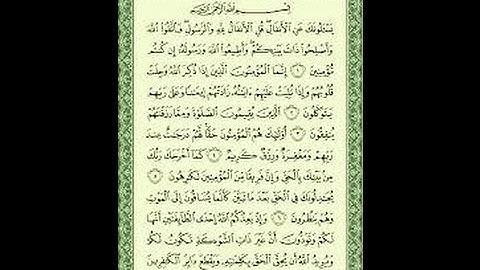 بِسْمِ ٱللَّهِ ٱلرَّحْمَٰنِ ٱلرَّحِيمِ
يَسْـَٔلُونَكَ عَنِ ٱلْأَنفَالِ ۖ قُلِ ٱلْأَنفَالُ لِلَّهِ وَٱلرَّسُولِ ۖ فَٱتَّقُوا۟ ٱللَّهَ
وَأَصْلِحُوا۟ ذَاتَ بَيْنِكُمْ ۖ وَأَطِيعُوا۟ ٱللَّهَ وَرَسُولَهُۥٓ إِن كُنتُم
مُّؤْمِنِينَ ١ إِنَّمَا ٱلْمُؤْمِنُونَ ٱلَّذِينَ إِذَا ذُكِرَ ٱللَّهُ وَجِلَتْ
قُلُوبُهُمْ وَإِذَا تُلِيَتْ عَلَيْهِمْ ءَايَٰتُهُۥ زَادَتْهُمْ إِيمَٰنًا وَعَلَىٰ رَبِّهِمْ
يَتَوَكَّلُونَ ٢ ٱلَّذِينَ يُقِيمُونَ ٱلصَّلَوٰةَ وَمِمَّا رَزَقْنَٰهُمْ
يُنفِقُونَ ٣ أُو۟لَٰٓئِكَ هُمُ ٱلْمُؤْمِنُونَ حَقًّا ۚ لَّهُمْ دَرَجَٰتٌ عِندَ
رَبِّهِمْ وَمَغْفِرَةٌ وَرِزْقٌ كَرِيمٌ ٤ كَمَآ أَخْرَجَكَ رَبُّكَ
مِنۢ بَيْتِكَ بِٱلْحَقِّ وَإِنَّ فَرِيقًا مِّنَ ٱلْمُؤْمِنِينَ لَكَٰرِهُونَ ٥
يُجَٰدِلُونَكَ فِى ٱلْحَقِّ بَعْدَ مَا تَبَيَّنَ كَأَنَّمَا يُسَاقُونَ إِلَى ٱلْمَوْتِ
وَهُمْ يَنظُرُونَ ٦ وَإِذْ يَعِدُكُمُ ٱللَّهُ إِحْدَى ٱلطَّآئِفَتَيْنِ أَنَّهَا
لَكُمْ وَتَوَدُّونَ أَنَّ غَيْرَ ذَاتِ ٱلشَّوْكَةِ تَكُونُ لَكُمْ
وَيُرِيدُ ٱللَّهُ أَن يُحِقَّ ٱلْحَقَّ بِكَلِمَٰتِهِۦ وَيَقْطَعَ دَابِرَ ٱلْكَٰفِرِينَ